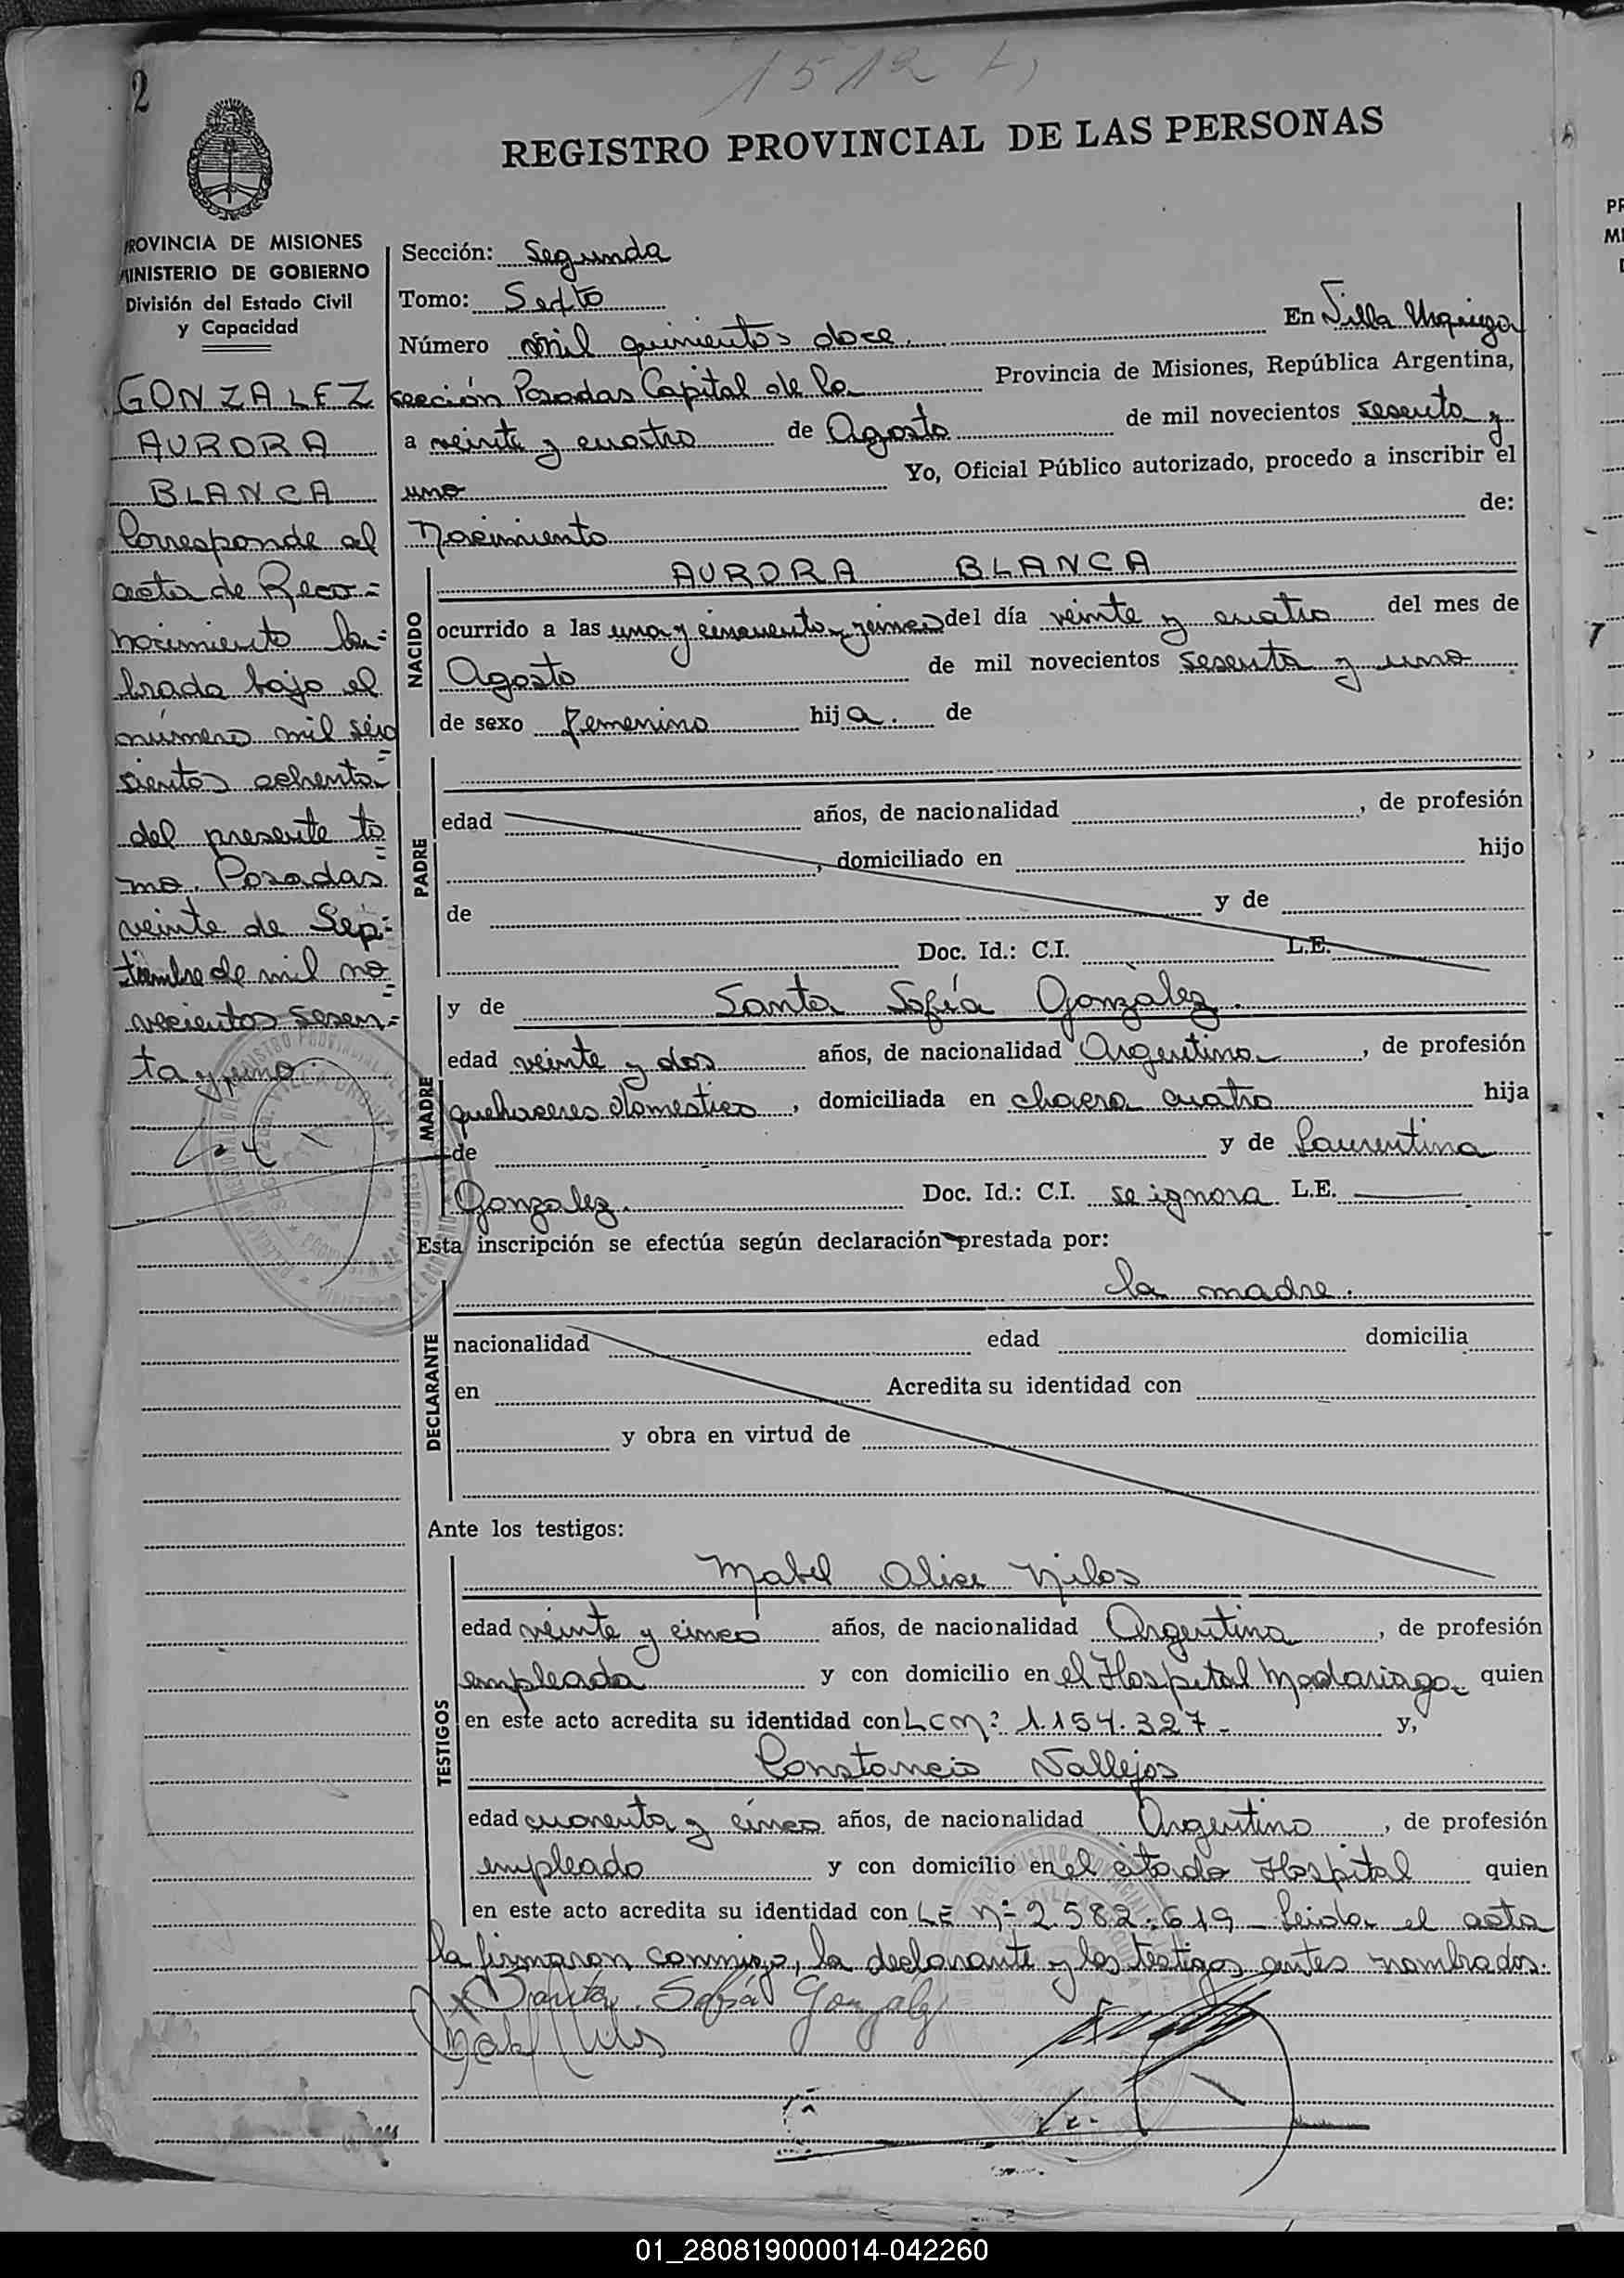 2
1512
REGISTRO PROVINCIAL DE LAS PERSONAS
PROVINCIA DE MISIONES
MINISTERIO DE GOBIERNO
División del Estado Civil
y Capacidad
GONZALEZ
AURORA
BLANCA
Corresponde al
acta de Reco=
nocimiento la=
brada bajo el
número mil seis
sientos ochenta
del presente to
=mo. Posadas
veinte de Sep=
tiembre de mil no
=vecientos sesen=
ta y uno.
Sección: Segunda
Tomo: Sexto
Número mil quinientos doce. En Villa Urquiza
sección Posadas Capital de la Provincia de Misiones, República Argentina,
a veinte y cuatro de Agosto de mil novecientos sesenta y
uno Yo, Oficial Público autorizado, procedo a inscribir el
Nacimiento de:
NACIDO
AURORA BLANCA
ocurrido a las una y cincuenta y cinco del día veinte y cuatro del mes de
Agosto de mil novecientos sesenta y uno
de sexo femenino hija. de
PADRE
edad años, de nacionalidad , de profesión
, domiciliado en hijo
de y de
Doc. Id.: C.I. L.E.
MADRE
y de Santa Sofía Gonzalez.
edad veinte y dos años, de nacionalidad Argentina , de profesión
quehaceres domestico , domiciliada en chacra cuatro hija
de y de Laurentina
Gonzalez. Doc. Id.: C.I. se ignora L.E.
Esta inscripción se efectúa según declaración prestada por:
DECLARANTE
la madre.
nacionalidad edad domicilia
en Acredita su identidad con
y obra en virtud de
Ante los testigos:
TESTIGOS
Mabel Alice Nilos
edad veinte y cinco años, de nacionalidad Argentina , de profesión
empleada y con domicilio en el Hospital Madariaga quien
en este acto acredita su identidad con LC Nº 1.154.327- y,
Constancio Vallejos
edad cuarenta y cinco años, de nacionalidad Argentino , de profesión
empleado y con domicilio en el citado Hospital quien
en este acto acredita su identidad con LE Nº 2.582.619 - Leida el acta
la firmaron conmigo, la declarante y los testigos antes nombrados.
Santa Sofía Gonzalez
01_280819000014-042260